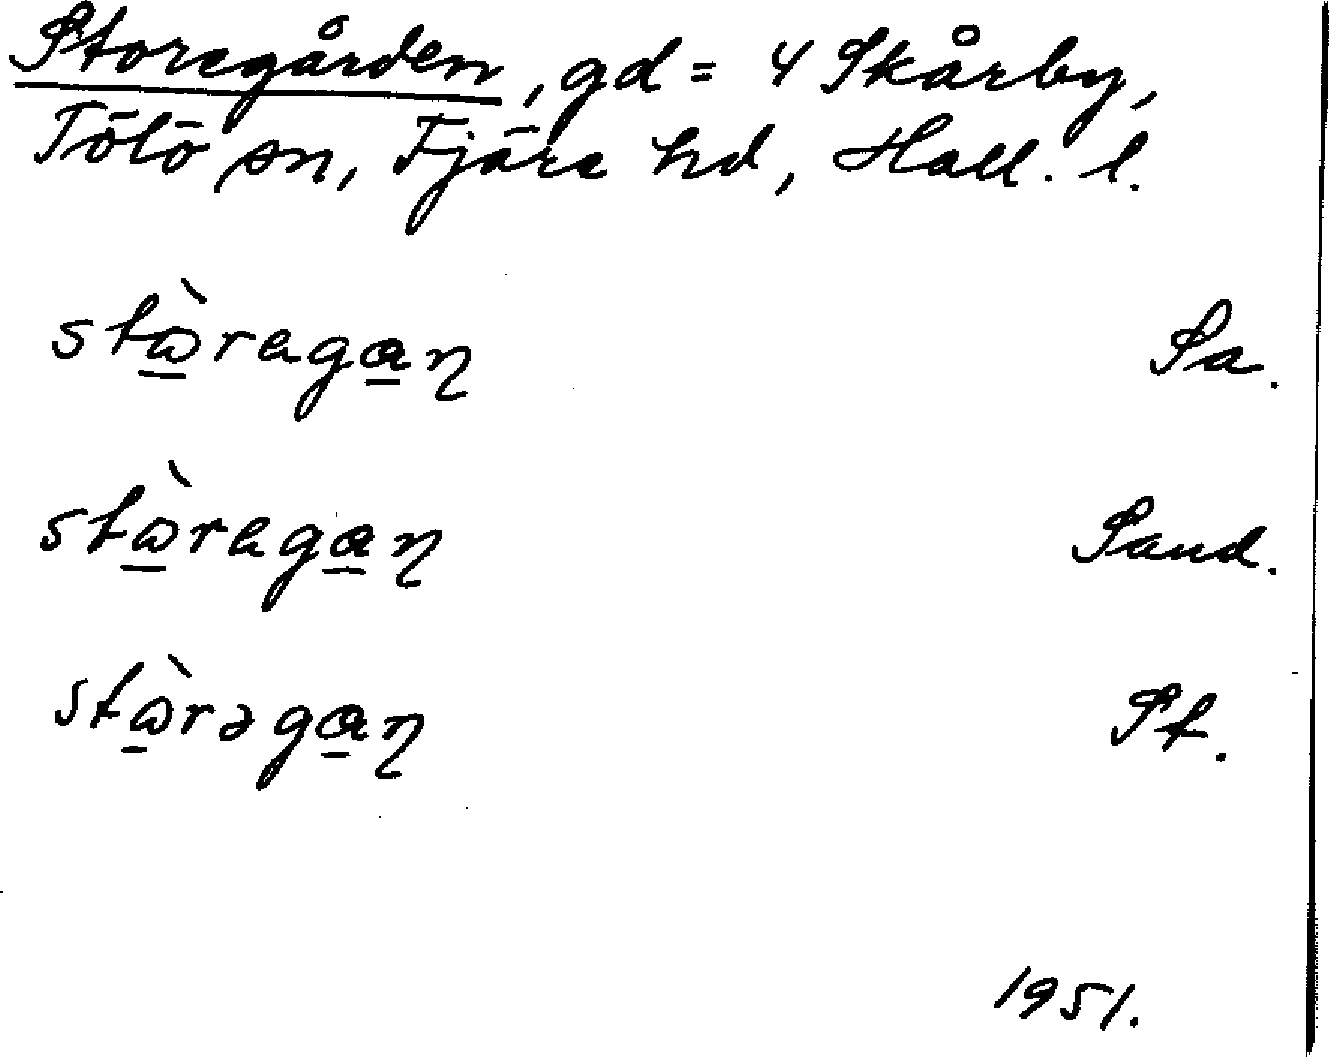 Storegården, gd = 4 Skårby,
Tölö sn, Fjäre hd, Hall. l.
stɷ̠̀regɑ̠ɳ Sa.
stɷ̠̀regɑ̠ɳ Sand.
stɷ̠̀rəgɑ̠ɳ St.
1951.